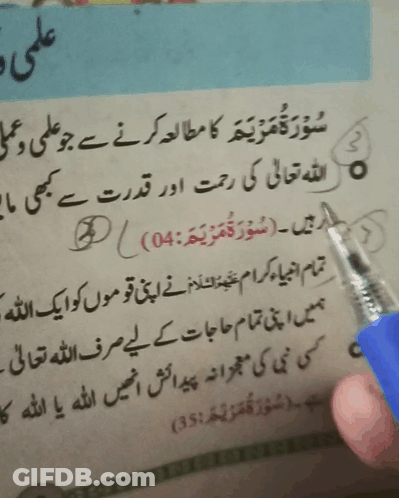 علمی و
سُوْرَةُ مَرْیَمَ کا مطالعہ کرنے سے جو علمی و عملی
اللہ تعالیٰ کی رحمت اور قدرت سے کبھی
رہیں۔ (سُوْرَةُ مَرْیَمَ: 04)
تمام انبیاء کرام عَلَيْهِمُ السَّلَامُ نے اپنی قوموں کو ایک اللہ
ہمیں اپنی تمام حاجات کے لیے صرف اللہ تعالیٰ
کسی نبی کی معجزانہ پیدائش انھیں اللہ یا اللہ کا
ہے۔ (سُوْرَةُ مَرْیَمَ: 35)
GIFDB.com